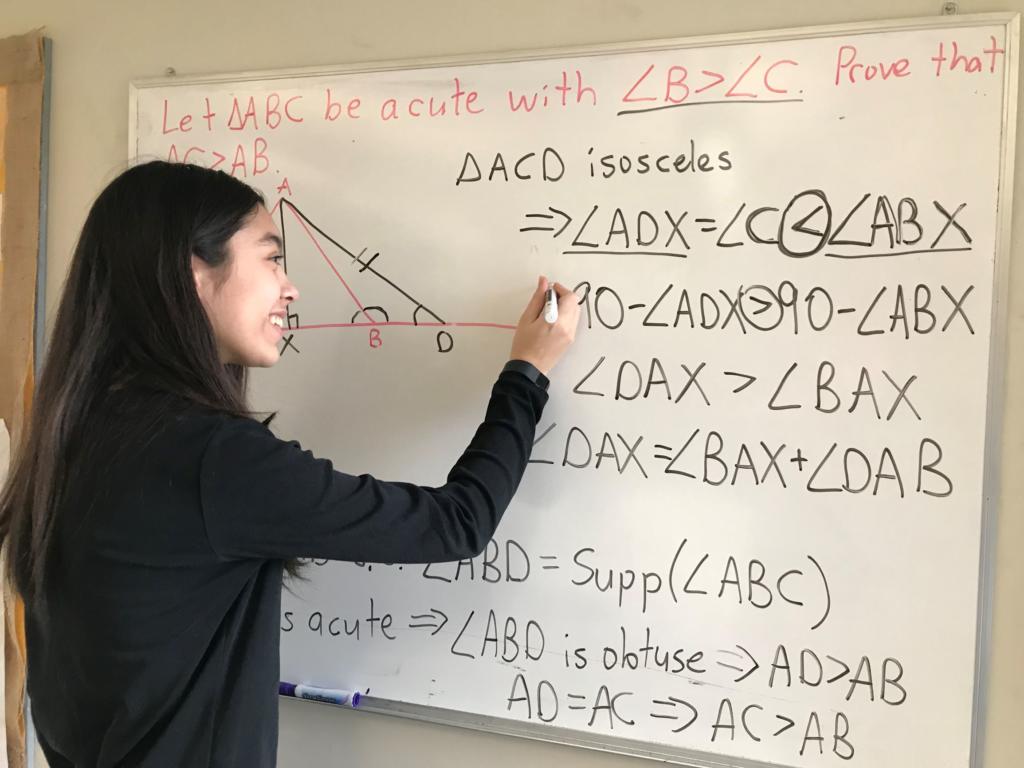 Let ΔABC be acute with ∠B>∠C. Prove that
AC>AB.
ΔACD isosceles
A
⇒∠ADX=∠C<∠ABX
90-∠ADX>90-∠ABX
X
B
D
∠DAX > ∠BAX
∠DAX=∠BAX+∠DAB
∠ABD = Supp(∠ABC)
s acute ⇒ ∠ABD is obtuse ⇒ AD>AB
AD=AC ⇒ AC>AB